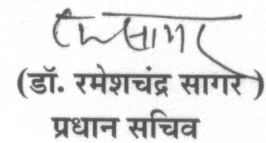 (डॉ. रमेशचंद्र सागर)
प्रधान सचिव